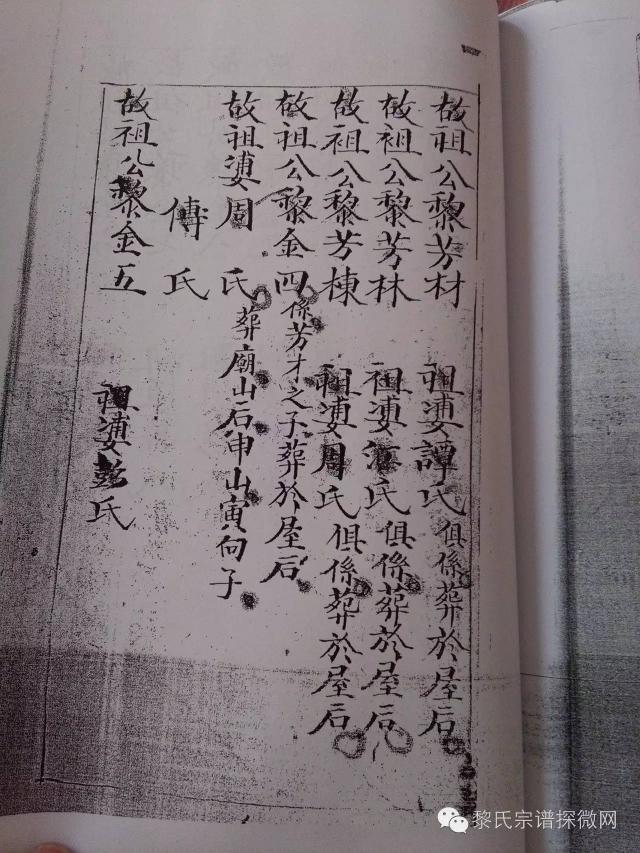 故祖公黎芳材 祖婆譚氏俱係葬於屋后
故祖公黎芳林 祖婆氏俱係葬於屋后
故祖公黎芳棟 祖婆周氏俱係葬於屋后
故祖公黎金四 係芳才之子葬於屋后
故祖婆周氏 葬廟山石申山寅向子
傅氏
故祖公黎金五 祖婆彭氏
黎氏宗谱探微网